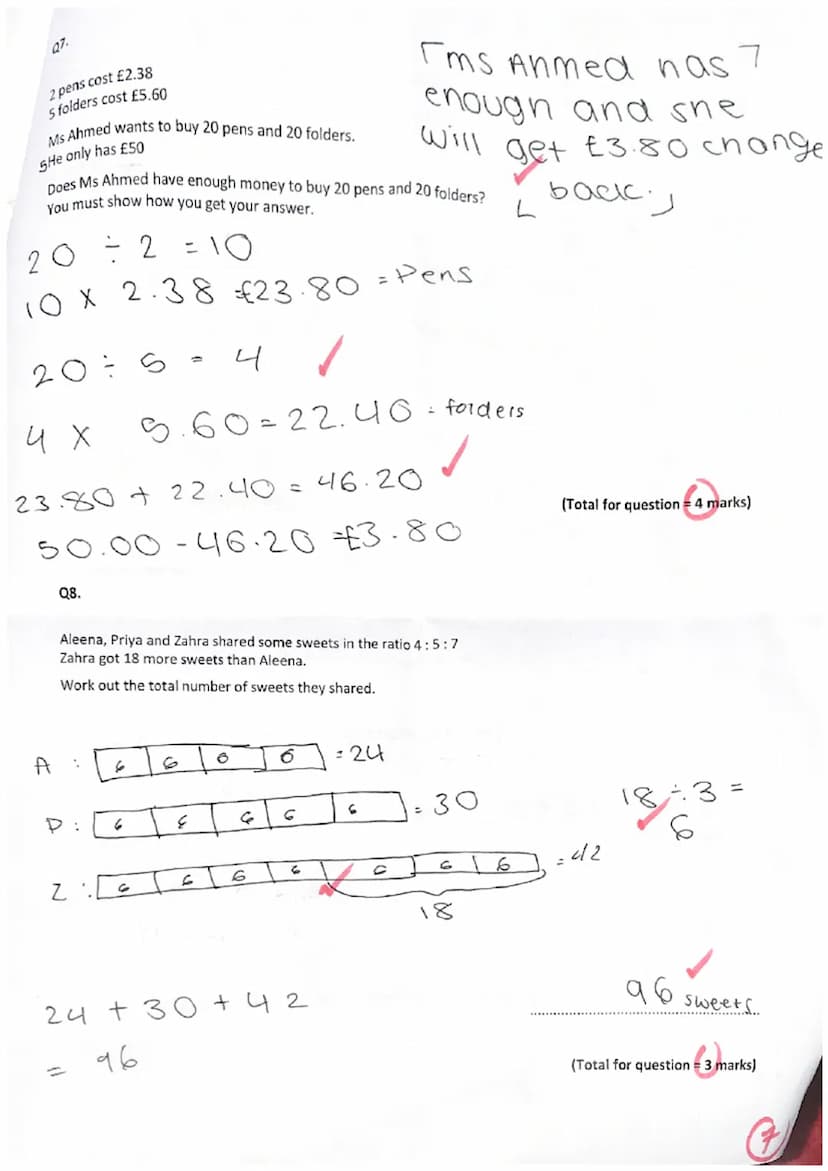 Q7.
2 pens cost £2.38
5 folders cost £5.60
Ms Ahmed wants to buy 20 pens and 20 folders.
She only has £50
Does Ms Ahmed have enough money to buy 20 pens and 20 folders?
You must show how you get your answer.
ms Ahmed has
enough and she
will get £3.80 change
back.
20 ÷ 2 = 10
10 x 2.38 = £23.80 = Pens
20 ÷ 5 = 4
4 x 5.60 = 22.40 = folders
23.80 + 22.40 = 46.20
50.00 - 46.20 = £3.80
(Total for question = 4 marks)
Q8.
Aleena, Priya and Zahra shared some sweets in the ratio 4 : 5 : 7
Zahra got 18 more sweets than Aleena.
Work out the total number of sweets they shared.
A : 6 6 6 6 = 24
P : 6 6 6 6 6 = 30
Z : 6 6 6 6 6 6 6 = 42
18
18 ÷ 3 =
6
24 + 30 + 42
= 96
96 sweets
(Total for question = 3 marks)
7